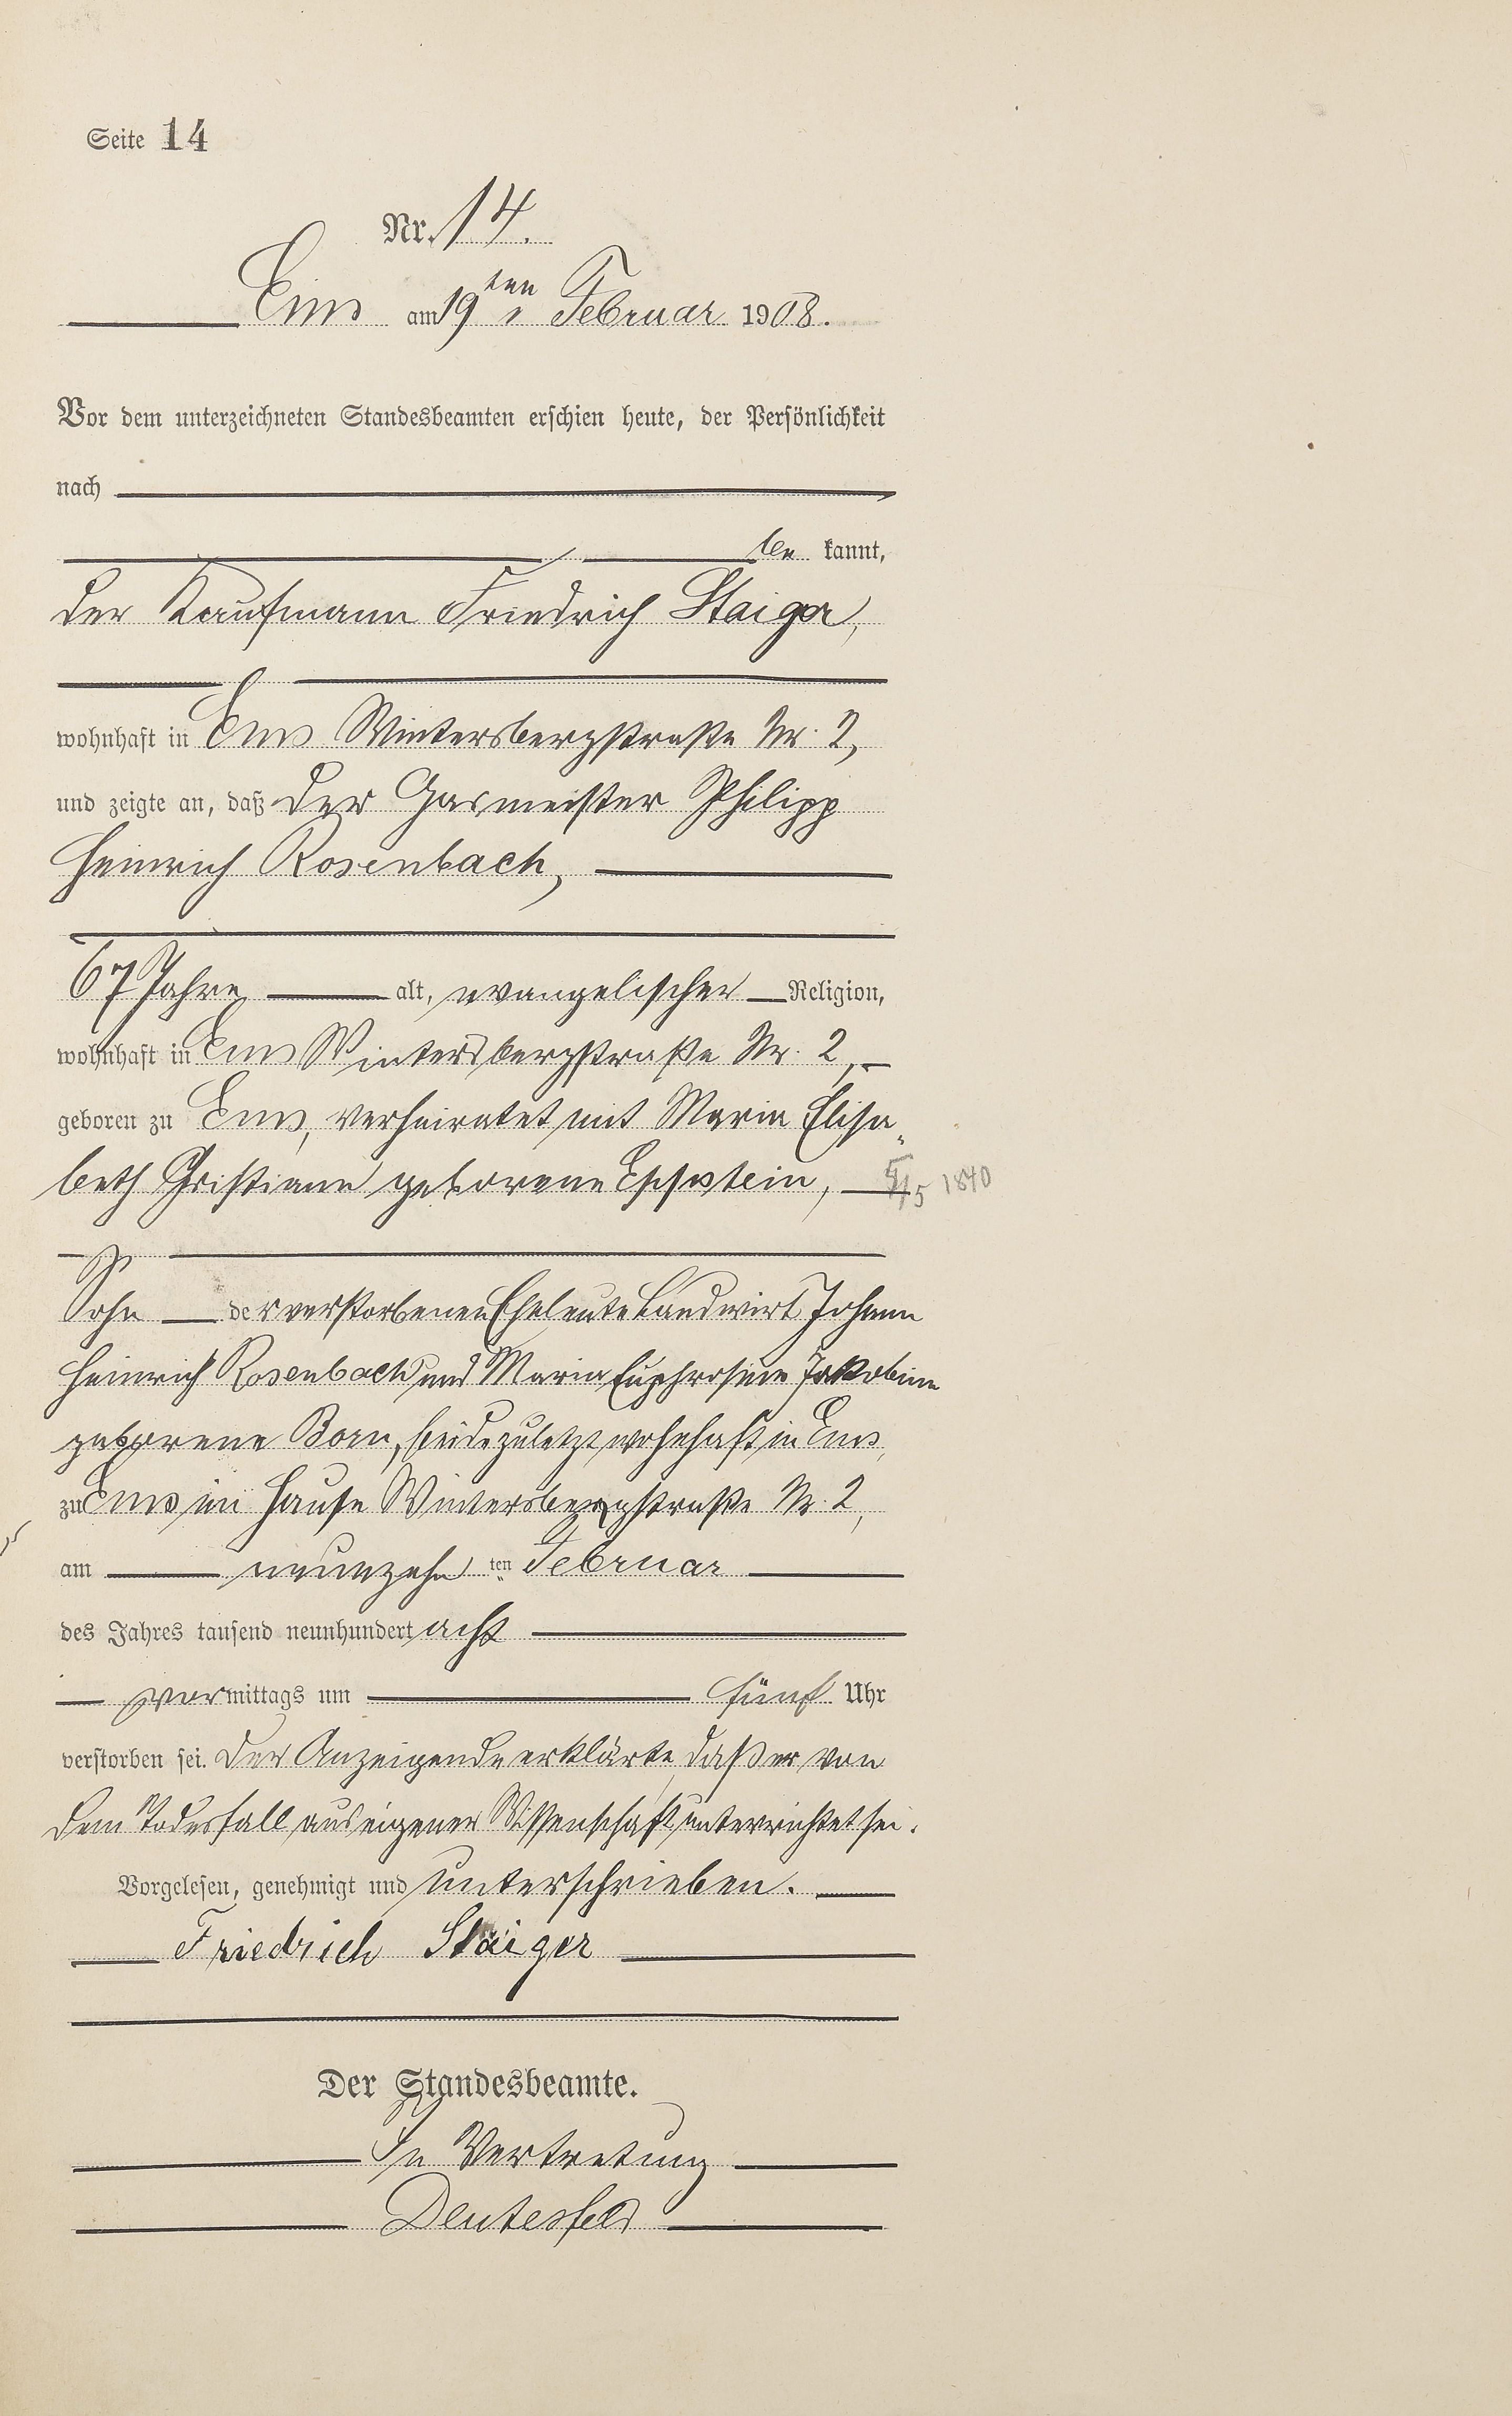 Seite 14
Nr. 14.
Ems am 19ten Februar 1908.
Vor dem unterzeichneten Standesbeamten erschien heute, der Persönlichkeit
nach
be kannt,
der Kaufmann Friedrich Staiger,
wohnhaft in Ems Wintersbergstraße Nr. 2,
und zeigte an, daß der Gasmeister Philipp
Heinrich Rosenbach,
67 Jahre alt, evangelischer Religion,
wohnhaft in Ems Wintersbergstraße Nr. 2,
geboren zu Ems, verheiratet mit Maria Elisa-
beth Christiane geborene Eppstein, 5/5 1840
Sohn der verstorbenen Eheleute Landwirt Johann
Heinrich Rosenbach und Maria Euphrosine Jakobine
geborene Born, beide zuletzt wohnhaft in Ems,
zu Ems im Hause Wintersbergstraße Nr. 2,
am neunzehn ten Februar
des Jahres tausend neunhundert acht
vormittags um fünf Uhr
verstorben sei. Der Anzeigende erklärte, daß er von
dem Todesfall aus eigener Wissenschaft unterrichtet sei.
Vorgelesen, genehmigt und unterschrieben.
Friedrich Staiger
Der Standesbeamte.
In Vertretung
Deutesfeld